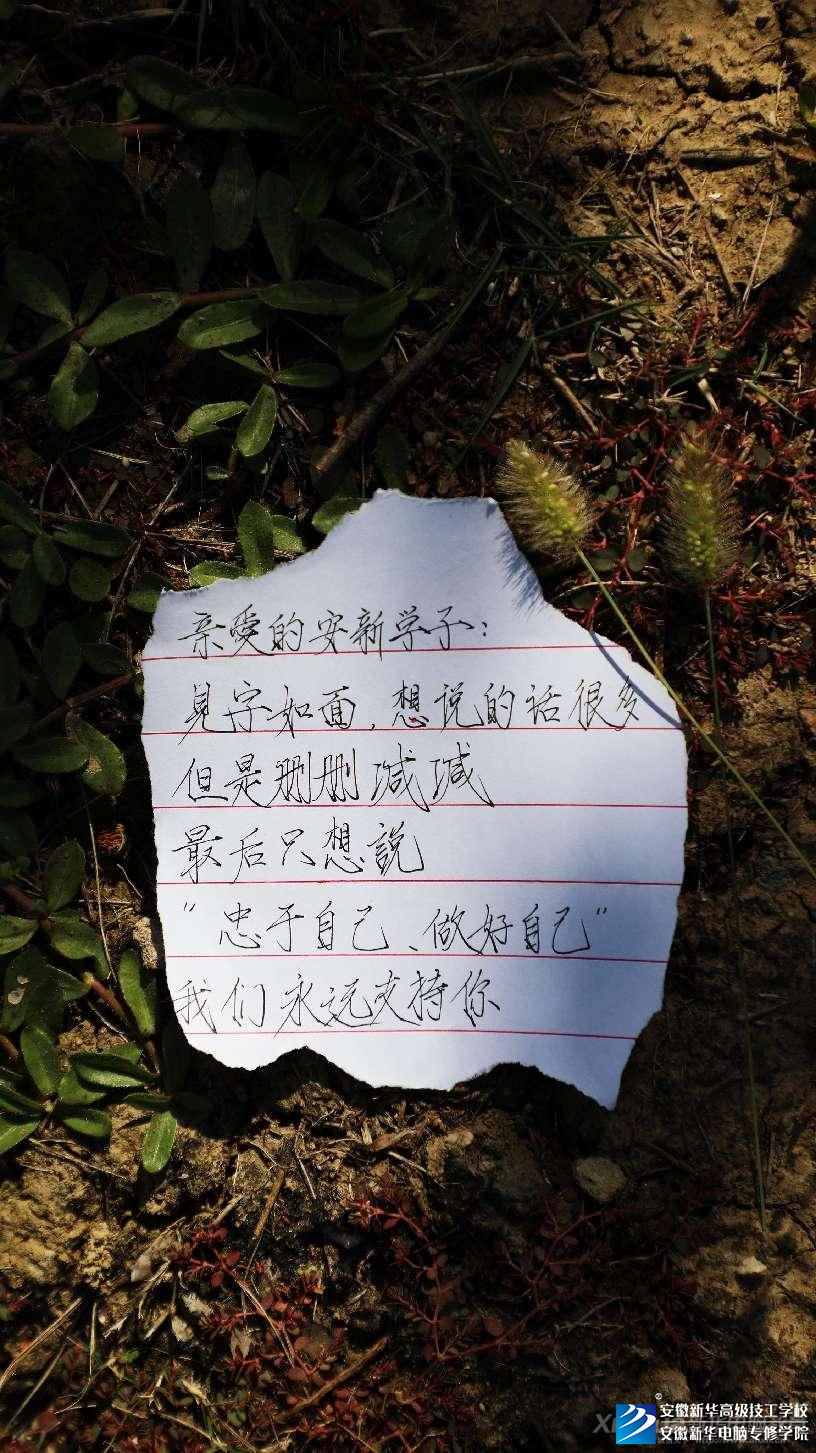 亲爱的安新学子：
見字如面，想说的话很多
但是删删减减
最后只想説
“忠于自己、做好自己”
我们永远支持你
安徽新华高级技工学校
安徽新华电脑专修学院